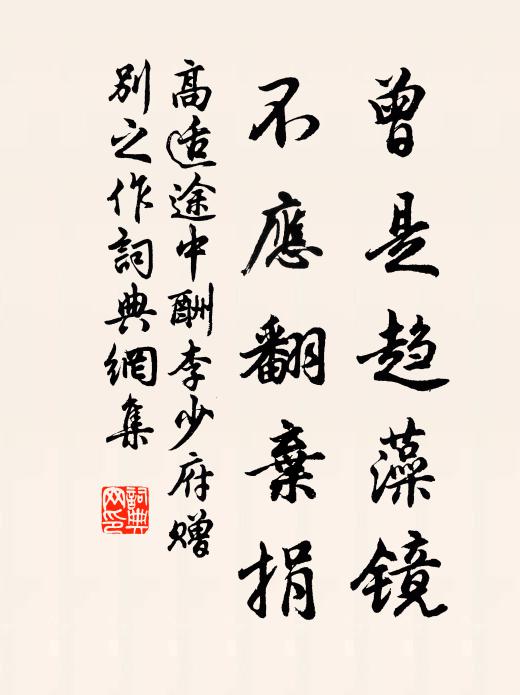 曾是趋藻镜
不應翻棄捐
高适途中酬李少府赠
别之作詞典網集
詞典網印